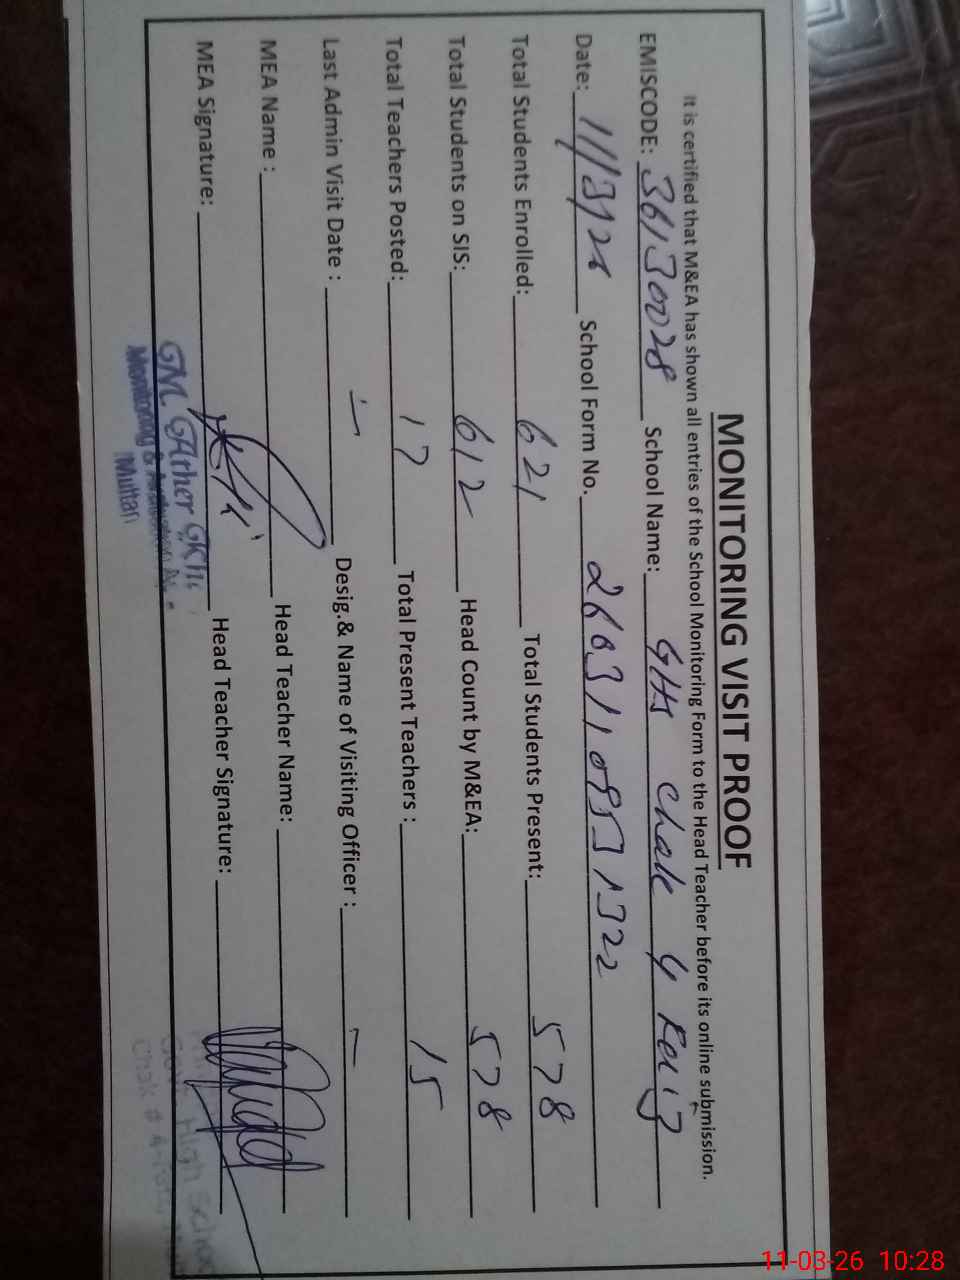 MONITORING VISIT PROOF
It is certified that M&EA has shown all entries of the School Monitoring Form to the Head Teacher before its online submission.
EMISCODE: 36130028 School Name: GHS Chak 4 Faiz
Date: 11/3/26 School Form No. 26631108531322
Total Students Enrolled: 621 Total Students Present: 578
Total Students on SIS: 612 Head Count by M&EA: 578
Total Teachers Posted: 17 Total Present Teachers : 15
Last Admin Visit Date : — Desig.& Name of Visiting Officer : —
MEA Name : Head Teacher Name:
MEA Signature: Head Teacher Signature:
Monitoring &
Multan
Govt High School
Chak # 4
11-03-26 10:28